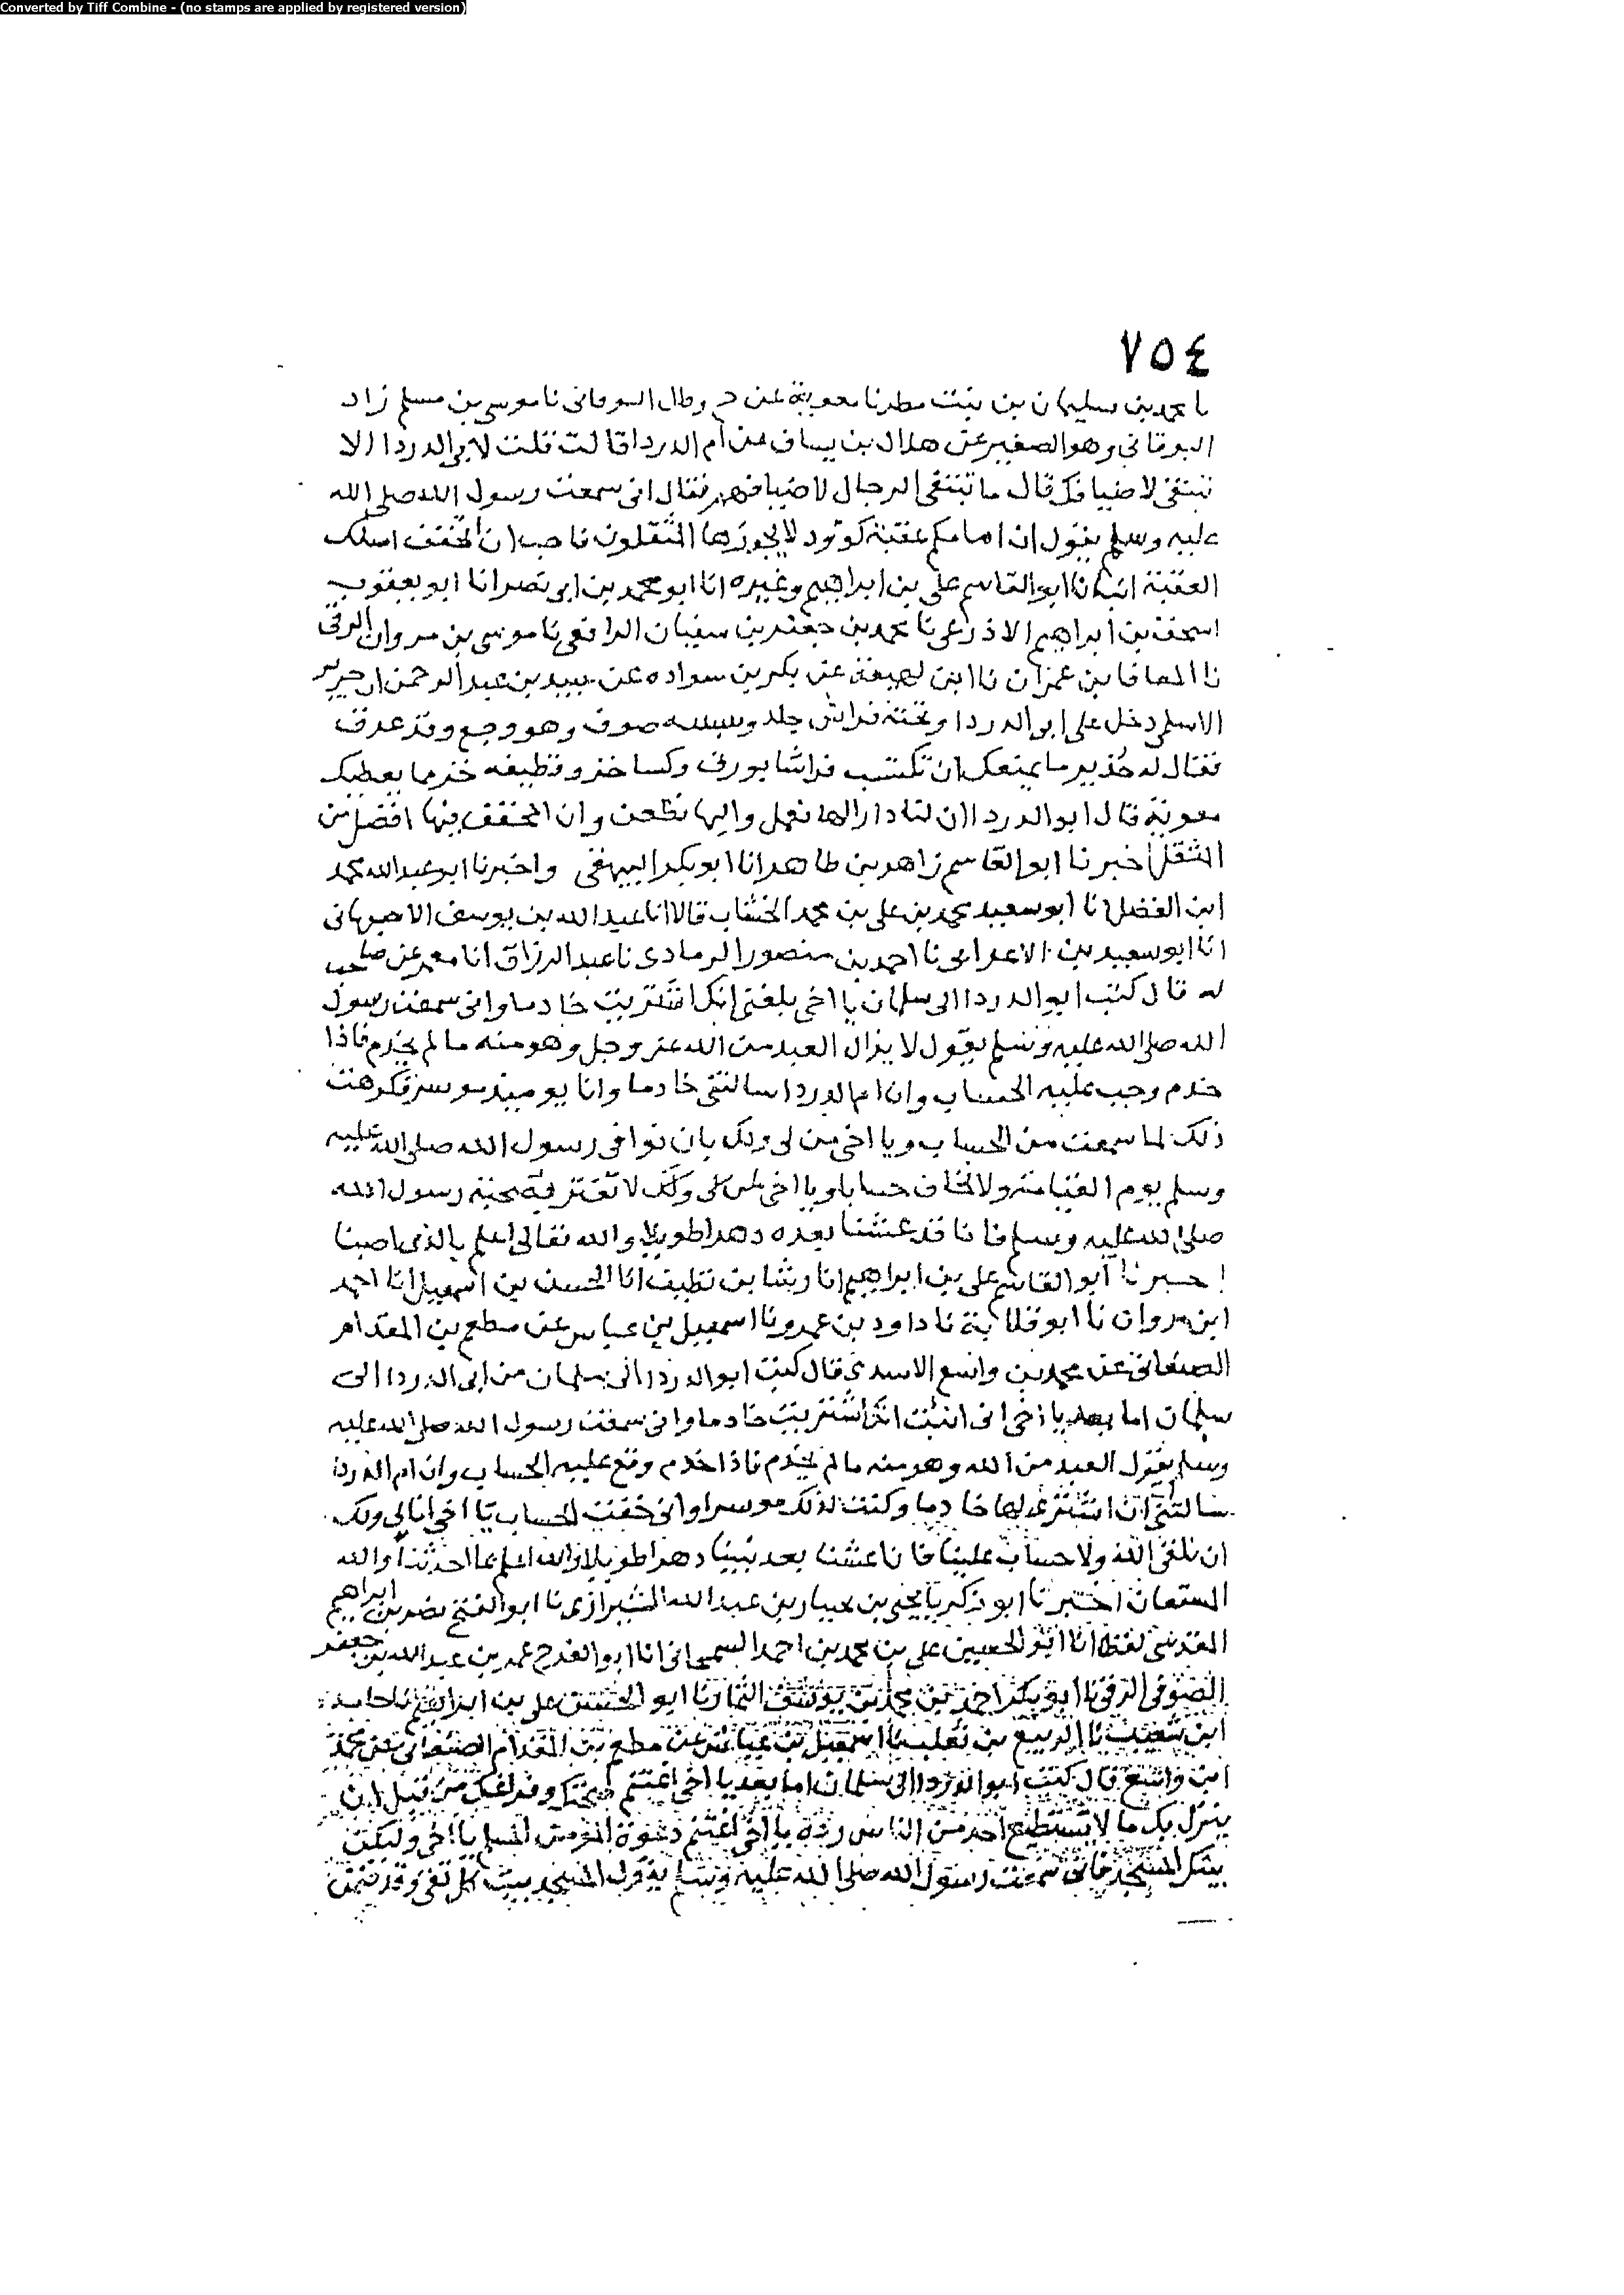 Converted by Tiff Combine - (no stamps are applied by registered version)
٧٥٤
نا محمد بن سليمان بن بنت مطر نا معوية عن ح وقال البوقانى نا موسى بن مسلم زاد
البوقانى وهو الصغير عن هلال بن يساف عن ام الدردا قالت قلت لابى الدردا الا
تبتغى لاضيافك قال ما تبتغى الرجال لاضيافهم فقال انى سمعت رسول الله صلى الله
عليه وسلم يقول ان امامكم عقبة كؤود لا يجوزها المثقلون فاحب ان اتخفف لتلك
العقبة انبانا ابو القاسم على بن ابراهيم وغيره انا ابو محمد بن ابى نصر انا ابو يعقوب
اسحق بن ابراهيم الاذرعى نا محمد بن جعفر بن سفيان الرافقى نا موسى بن مروان الرقى
نا المعافا بن عمران نا ابن لهيعة عن بكر بن سواده عن عبيد بن عبد الرحمن ان حدير
الاسلمى دخل على ابو الدردا وتحته فراش جلد وسبسه صوف وهو وجع وقد عرق
فقال له حدير ما يمنعك ان تكتسب فراشا بورق وكسا خز وقطيفه خز مما يعطيك
معوية قال ابو الدردا ان لنا دارا لها نعمل واليها نظعن وان المخفف فيها افضل من
المثقل اخبرنا ابو القاسم زاهر بن طاهر انا ابو بكر البيهقى واخبرنا ابو عبد الله محمد
ابن الفضل انا ابو سعيد محمد بن على بن محمد الخشاب قالا انا عبد الله بن يوسف الاصبهانى
انا ابو سعيد بن الاعرابى نا احمد بن منصور الرمادى نا عبد الرزاق انا معمر عن صاحب
له قال كتب ابو الدردا الى سلمان يا اخى بلغنى انك اشتريت خادما وانى سمعت رسول
الله صلى الله عليه وسلم يقول لا يزال العبد من الله عز وجل وهو منه ما لم يخدم فاذا
خدم وجب عليه الحساب وان ام الدردا سالتنى خادما وانا يوميذ موسر فكرهت
ذلك لما سمعت من الحساب ويا اخى من لى ولك بان نوافى رسول الله صلى الله عليه
وسلم يوم القيامة ولا نخاف حسابا ويا اخى لا تغتر بصحبة رسول الله
صلى الله عليه وسلم فانا قد عشنا بعده دهرا طويلا والله تعالى اعلم بالذى اصبنا
اخبرنا ابو القاسم على بن ابراهيم انا رشا بن نظيف انا الحسن بن اسمعيل انا احمد
ابن مروان نا ابو قلابة نا داود بن عمرو نا اسمعيل بن عياش عن مطعم بن المقدام
الصنعانى عن محمد بن واسع الاسدى قال كتب ابو الدردا الى سلمان من ابى الدردا الى
سلمان اما بعد يا اخى انى انبئت انك اشتريت خادما وانى سمعت رسول الله صلى الله عليه
وسلم يقول العبد من الله وهو منه ما لم يخدم فاذا خدم وقع عليه الحساب وان ام الدردا
سالتنى ان اشترى لها خادما وكنت لذلك موسرا وانى خفت الحساب يا اخى انا لى ولك
ان نلقى الله ولا حساب علينا فانا عشنا بعد نبينا دهرا طويلا والله اعلم بما احدثنا والله
المستعان اخبرنا ابو زكريا يحيى بن عبد الله الشيرازى نا ابو الفتح نصر بن ابراهيم
المقدسى لفظا انا ابو الحسين على بن محمد بن احمد انا ابو الفرج عمر بن عبد الله بن جعفر
الصوفى الرقى نا ابو بكر احمد بن محمد بن يوسف النجار نا ابو الحسن على بن ابراهيم نا حامد
ابن شعيب نا الربيع بن ثعلب نا اسمعيل بن عياش عن مطعم بن المقدام الصنعانى عن محمد
ابن واسع قال كتب ابو الدردا الى سلمان اما بعد يا اخى اغتنم صحتك وفراغك من قبل ان
ينزل بك ما لا يستطيع احد من الناس رده يا اخى اغتنم دعوة المومن المبتلى يا اخى وليكن
بيتك المسجد فانى سمعت رسول الله صلى الله عليه وسلم يقول المسجد بيت كل تقى وقد ضمن